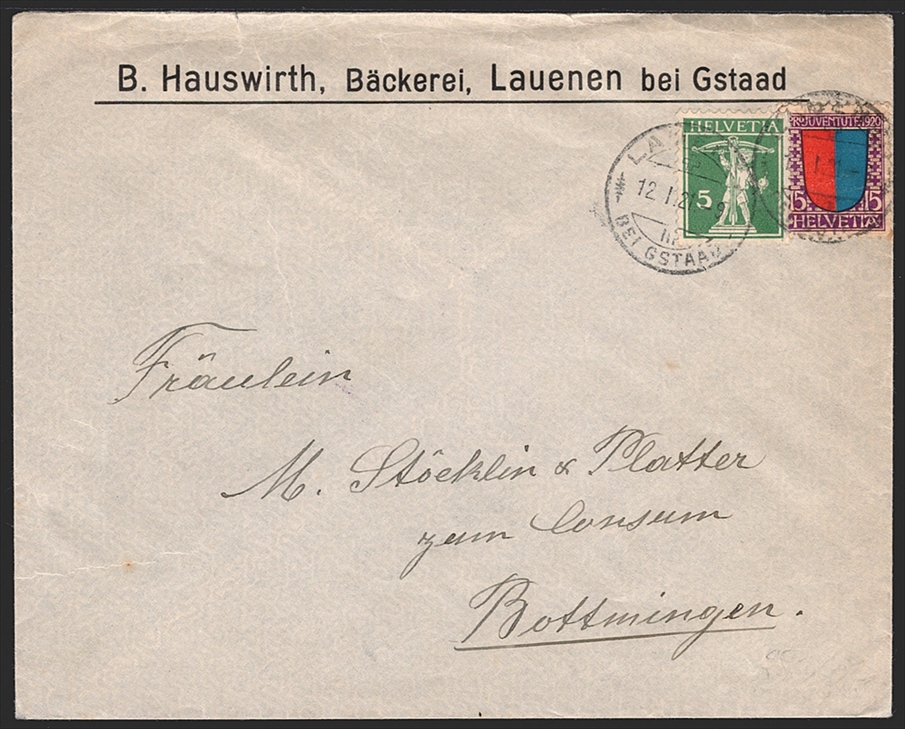 B. Hauswirth, Bäckerei, Lauenen bei Gstaad
HELVETIA
5
PRO JUVENTUTE 1920
15 15
HELVETIA
12.I.21
BEI GSTAAD
Fräulein
M. Stöcklin & Platter
zum Consum
Bottmingen.